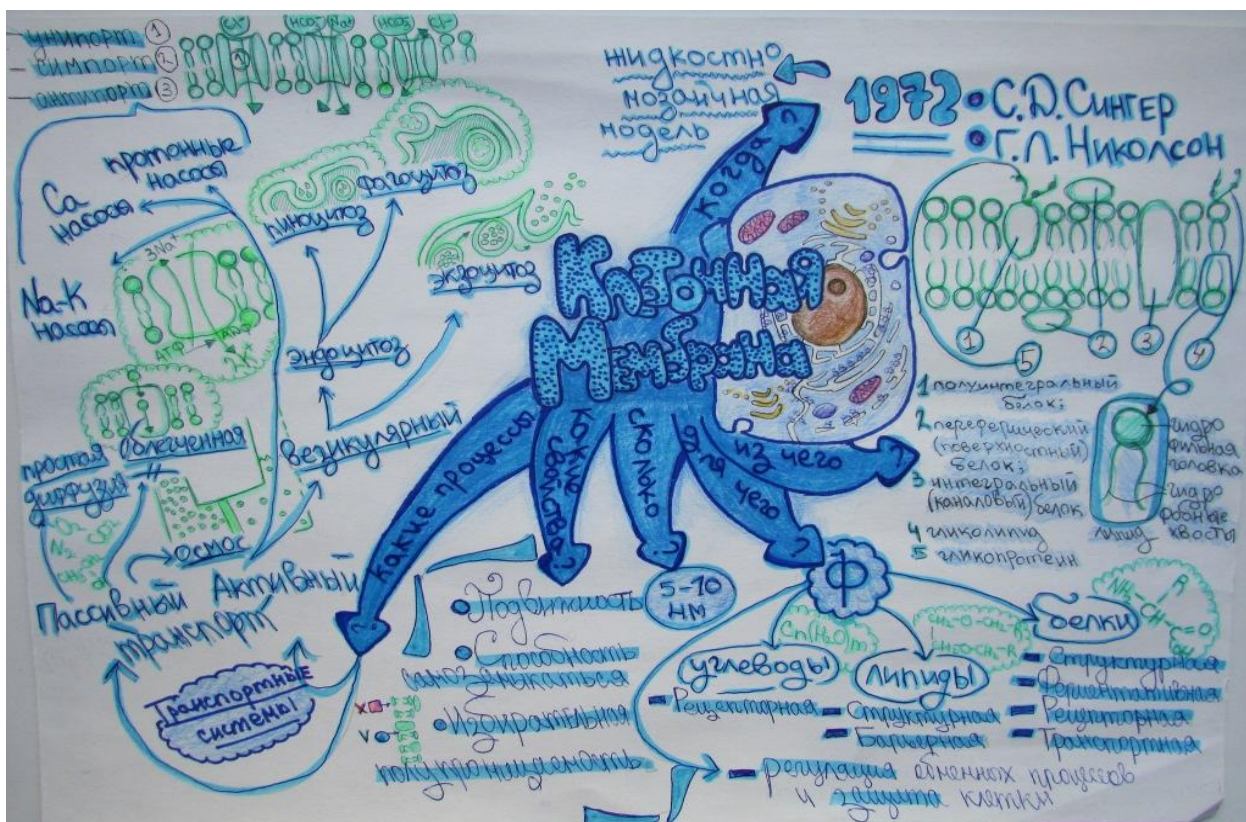 унипорт 1
симпорт 2
антипорт 3
Cl⁻
HCO₃⁻ Na⁺
HCO₃⁻ Cl⁻
1
протонные
насосы
Ca
насосы
Na-K
насосы
3Na⁺
АТФ
АДФ
2K⁺
пиноцитоз
фагоцитоз
экзоцитоз
эндоцитоз
везикулярный
простая
диффузия
облегченная
осмос
Пассивный
Активный
транспорт
Транспортные
системы
жидкостно
мозаичная
модель
1972
С.Д.Сингер
Г.Л.Николсон
Клеточная
Мембрана
Когда ?
Какие процессы ?
Какие свойства ?
Сколько ?
Для чего ?
Из чего ?
1 2 3 4
5
1 полуинтегральный
белок;
2 переферический
(поверхностный)
белок;
3 интегральный
(каналовый) белок
4 гликолипид
5 гликопротеин
гидро
фильная
головка
гидро
фобные
хвосты
липид
Подвижность
Способность
самозамыкаться
Избирательная
полупроницаемость
X
V
5-10
нм
Ф
Cn(H₂O)m
углеводы
Рецепторная
липиды
Структурная
Барьерная
NH₂-CH-C=O
R
OH
белки
Структурная
Ферментативная
Рецепторная
Транспортная
регуляция обменных процессов
и защита клетки